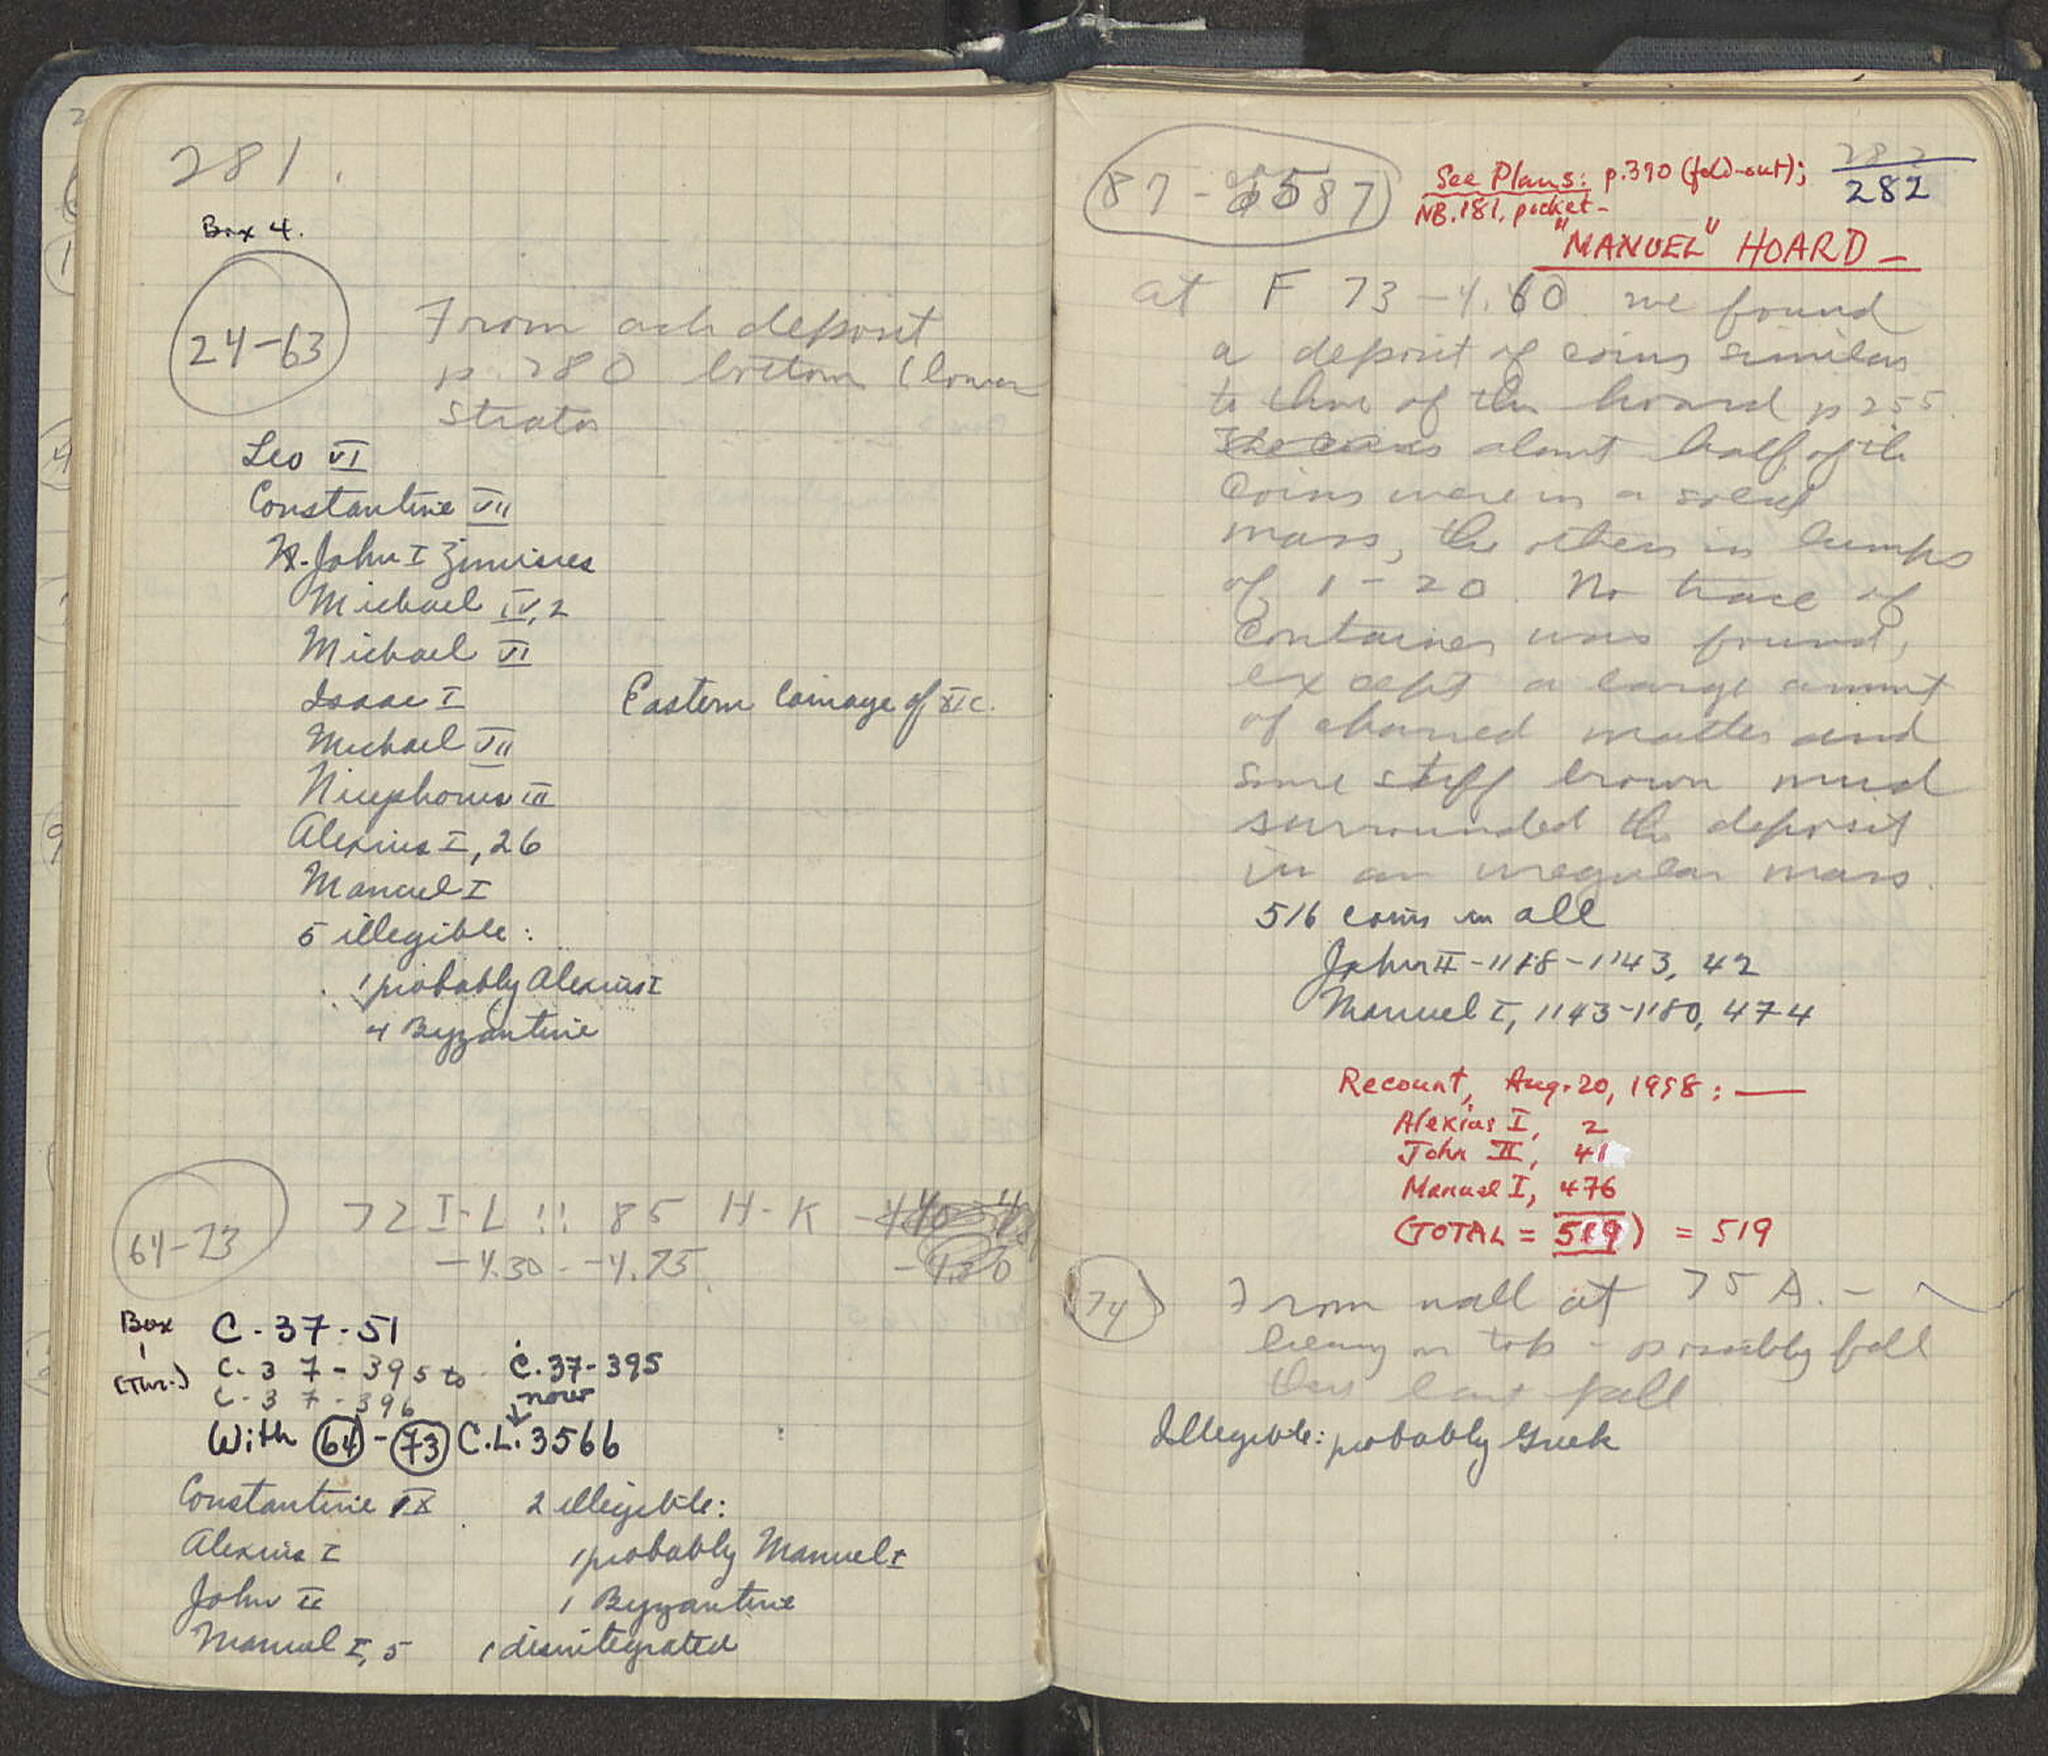 281.
Box 4.
24-63
From ash deposit
p. 280 bottom (lower
strata
Leo VI
Constantine VII
John I Zimisces
Michael IV, 2
Michael VI
Isaac I
Eastern Coinage of XI c.
Michael VII
Nicephorus III
Alexius I, 26
Manuel I
5 illegible:
1 probably Alexius I
4 Byzantine
64-73
72 I-L !! 85 H-K
-4.30 - -4.75
Box
1
C-37-51
C-37-395 to C.37-395
C-37-396 now
With 64-73 C.L. 3566
Constantine IX
Alexius I
John II
Manuel I, 5
2 illegible:
1 probably Manuel I
1 Byzantine
1 disintegrated
87-587
See Plans: p.390 (fold-out);
NB.181, pocket-
282
282
"MANUEL" HOARD -
at F 73 -4.60 we found
a deposit of coins similar
to those of the hoard p 255.
The coins about half of the
coins were in a solid
mass, the others in lumps
of 1-20. No trace of
container was found,
except a large amount
of charred matter and
some stiff brown mud
surrounded the deposit
in an irregular mass.
516 coins in all
John II - 1118-1143, 42
Manuel I, 1143-1180, 474
Recount, Aug. 20, 1998: —
Alexius I, 2
John II, 41
Manuel I, 476
(TOTAL = 519) = 519
74
From wall at 75 A. -
lying on top - possibly fell
there last fall
Illegible: probably Greek